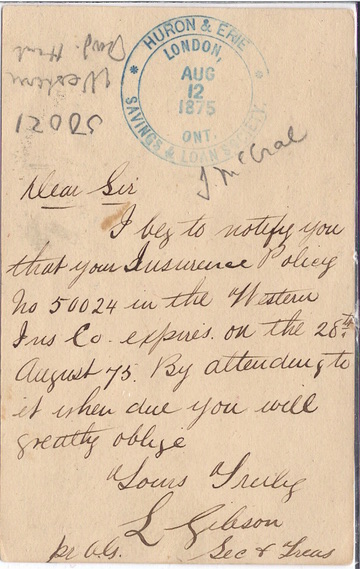 HURON & ERIE
LONDON,
AUG
12
1875
ONT.
SAVINGS & LOAN SOCIETY.
Western
50021
Dear Sir
I beg to notify you
that your Insurence Policy
No 50024 in the Western
Ins Co. expires. on the 28th
August 75. By attending to
it when due you will
greatly oblige
Yours Truly
L Gibson
Sec & Treas